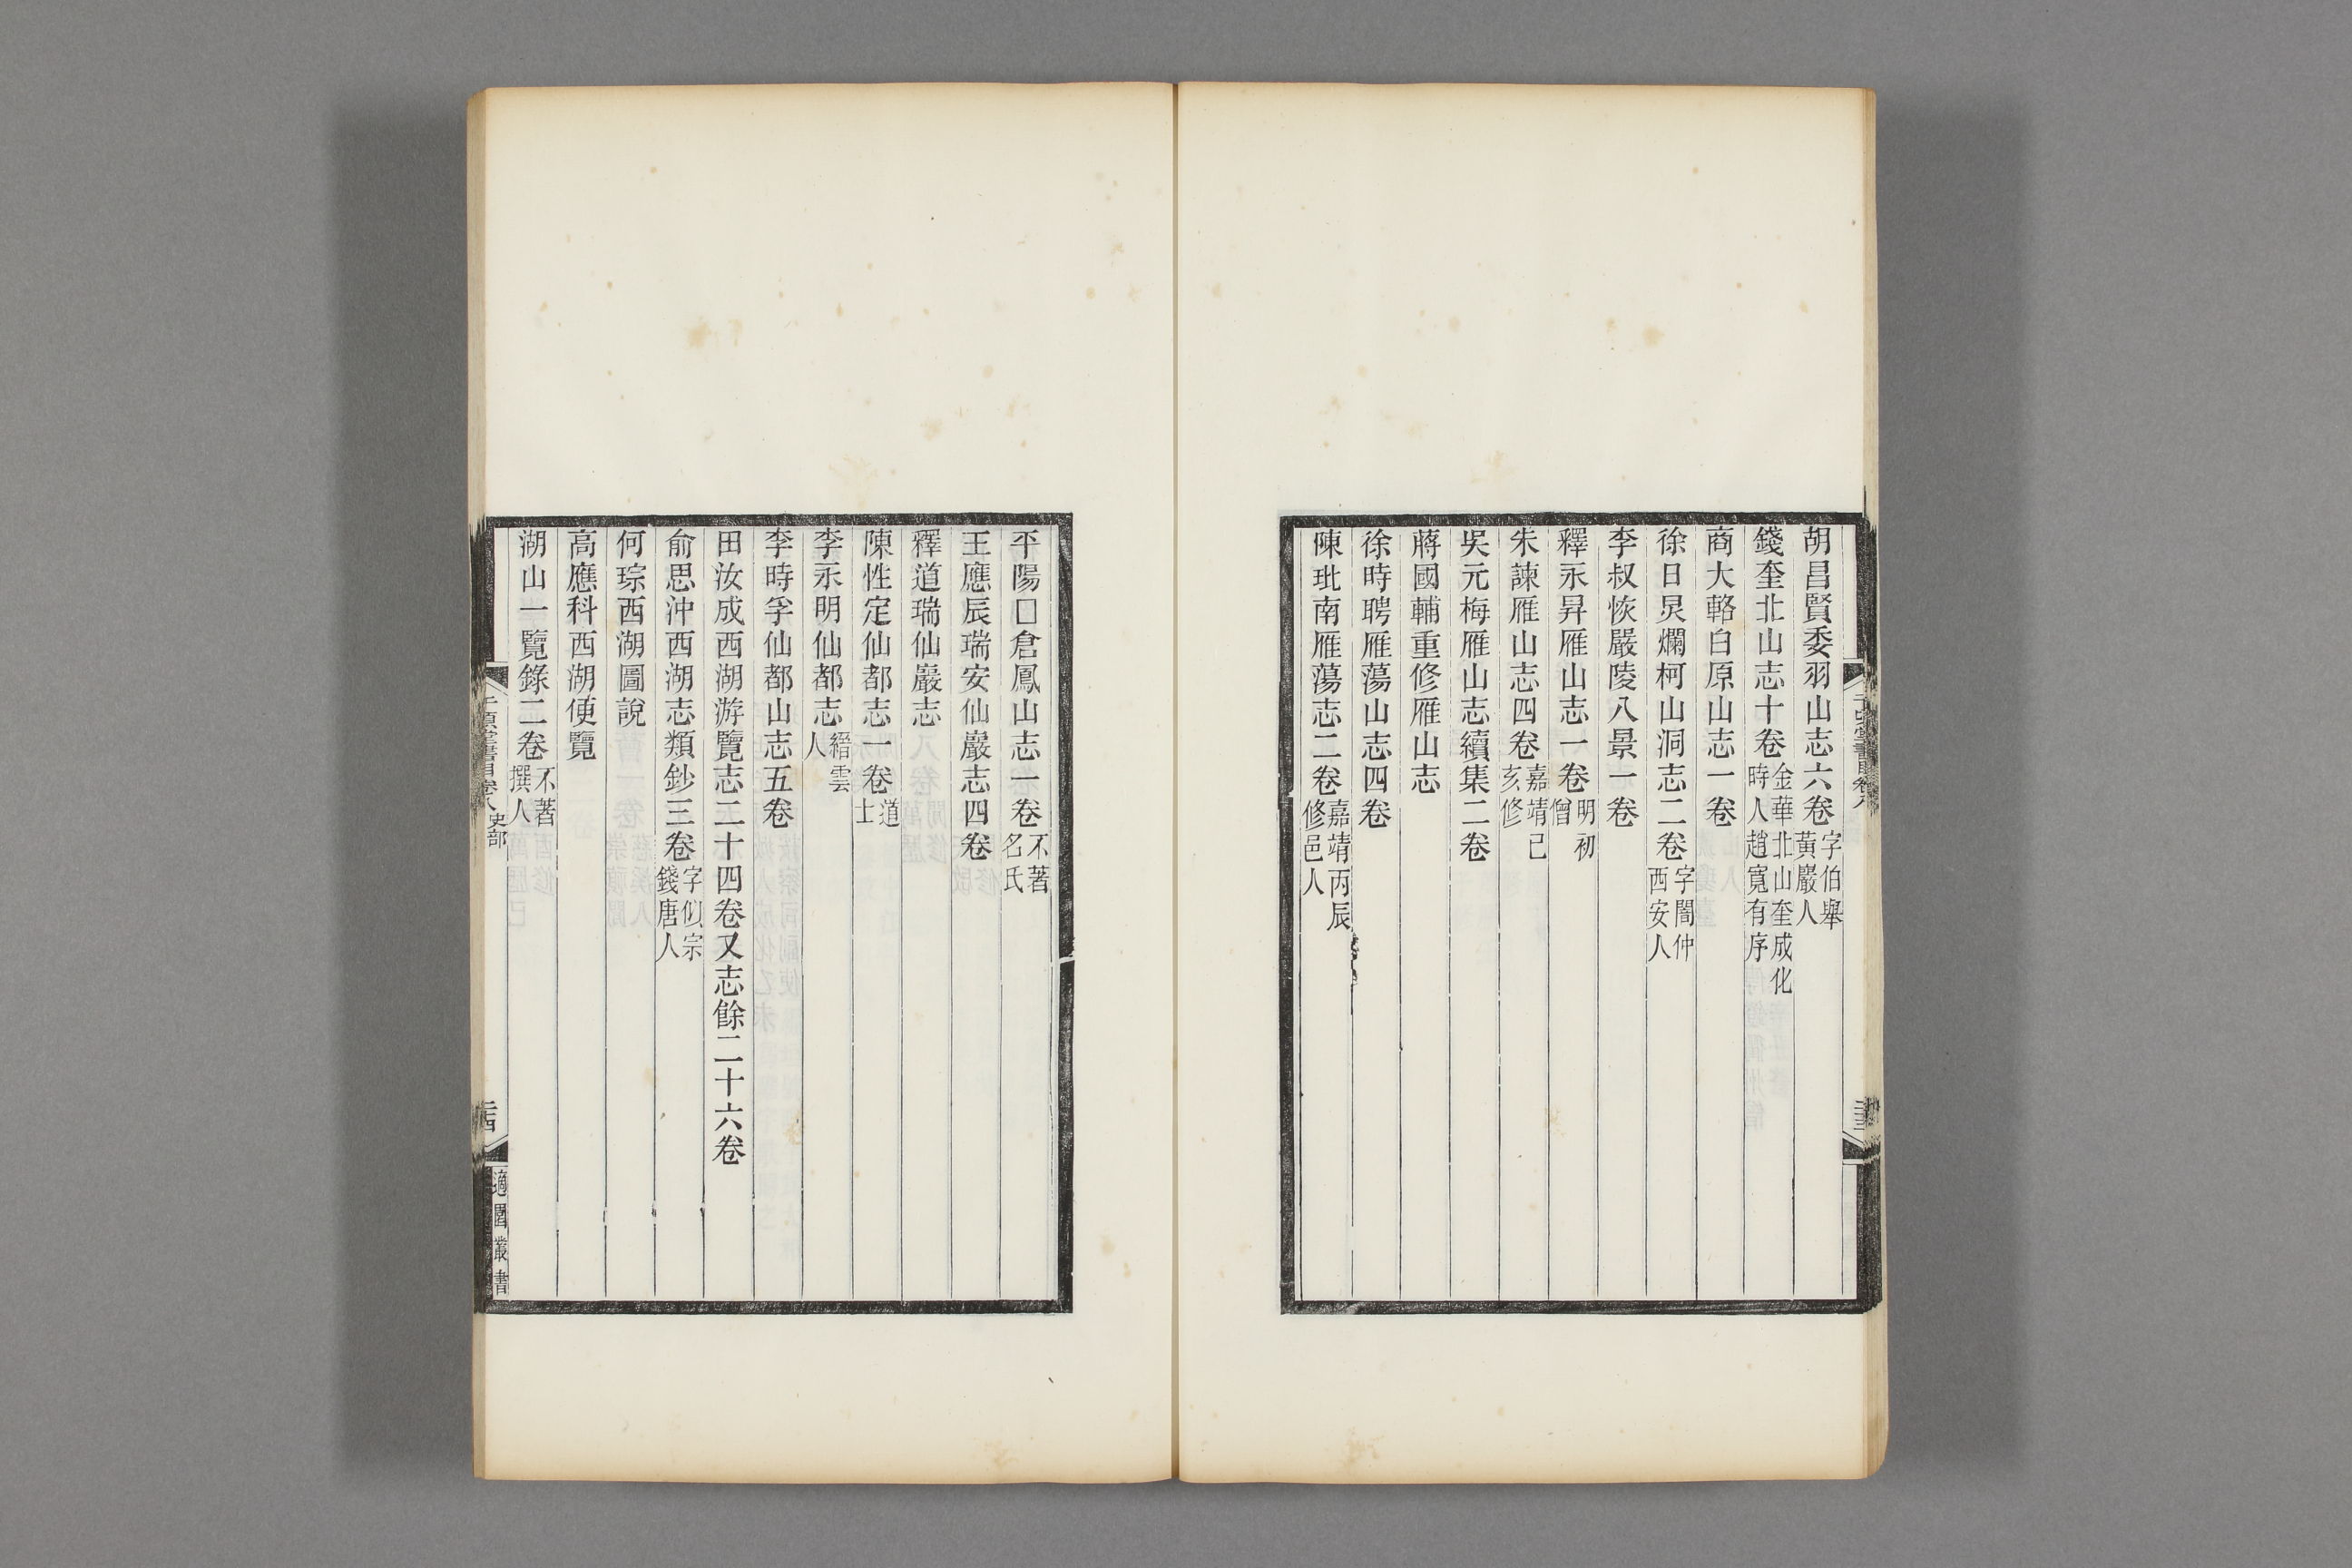 胡昌賢委羽山志六卷字伯舉黃巖人
錢奎北山志十卷金華北山奎成化時人趙寬有序
商大輅白原山志一卷
徐日炅爛柯山洞志二卷字闇仲西安人
李叔恢嚴陵八景一卷
釋永昇雁山志一卷明初僧
朱諫雁山志四卷嘉靖己亥修
吳元梅雁山志續集二卷
蔣國輔重修雁山志
徐時聘雁蕩山志四卷
陳玭南雁蕩志二卷嘉靖丙辰修邑人
平陽□倉鳳山志一卷不著名氏
王應辰瑞安仙巖志四卷
釋道瑞仙巖志
陳性定仙都志一卷道士
李永明仙都志縉雲人
李時孚仙都山志五卷
田汝成西湖游覽志二十四卷又志餘二十六卷
俞思沖西湖志類鈔三卷字似宗錢唐人
何琮西湖圖說
高應科西湖便覽
湖山一覽錄二卷不著撰人
千頃堂書目卷八 史部
二十四
適園叢書